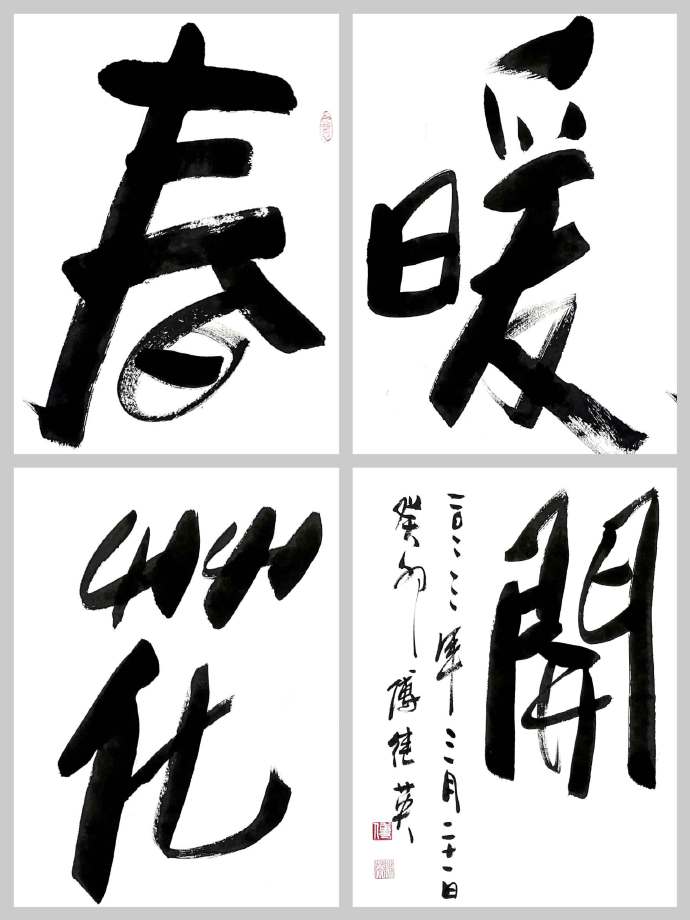 春
暖
花
開
二〇二三年三月二十一日
癸卯
傅佳英